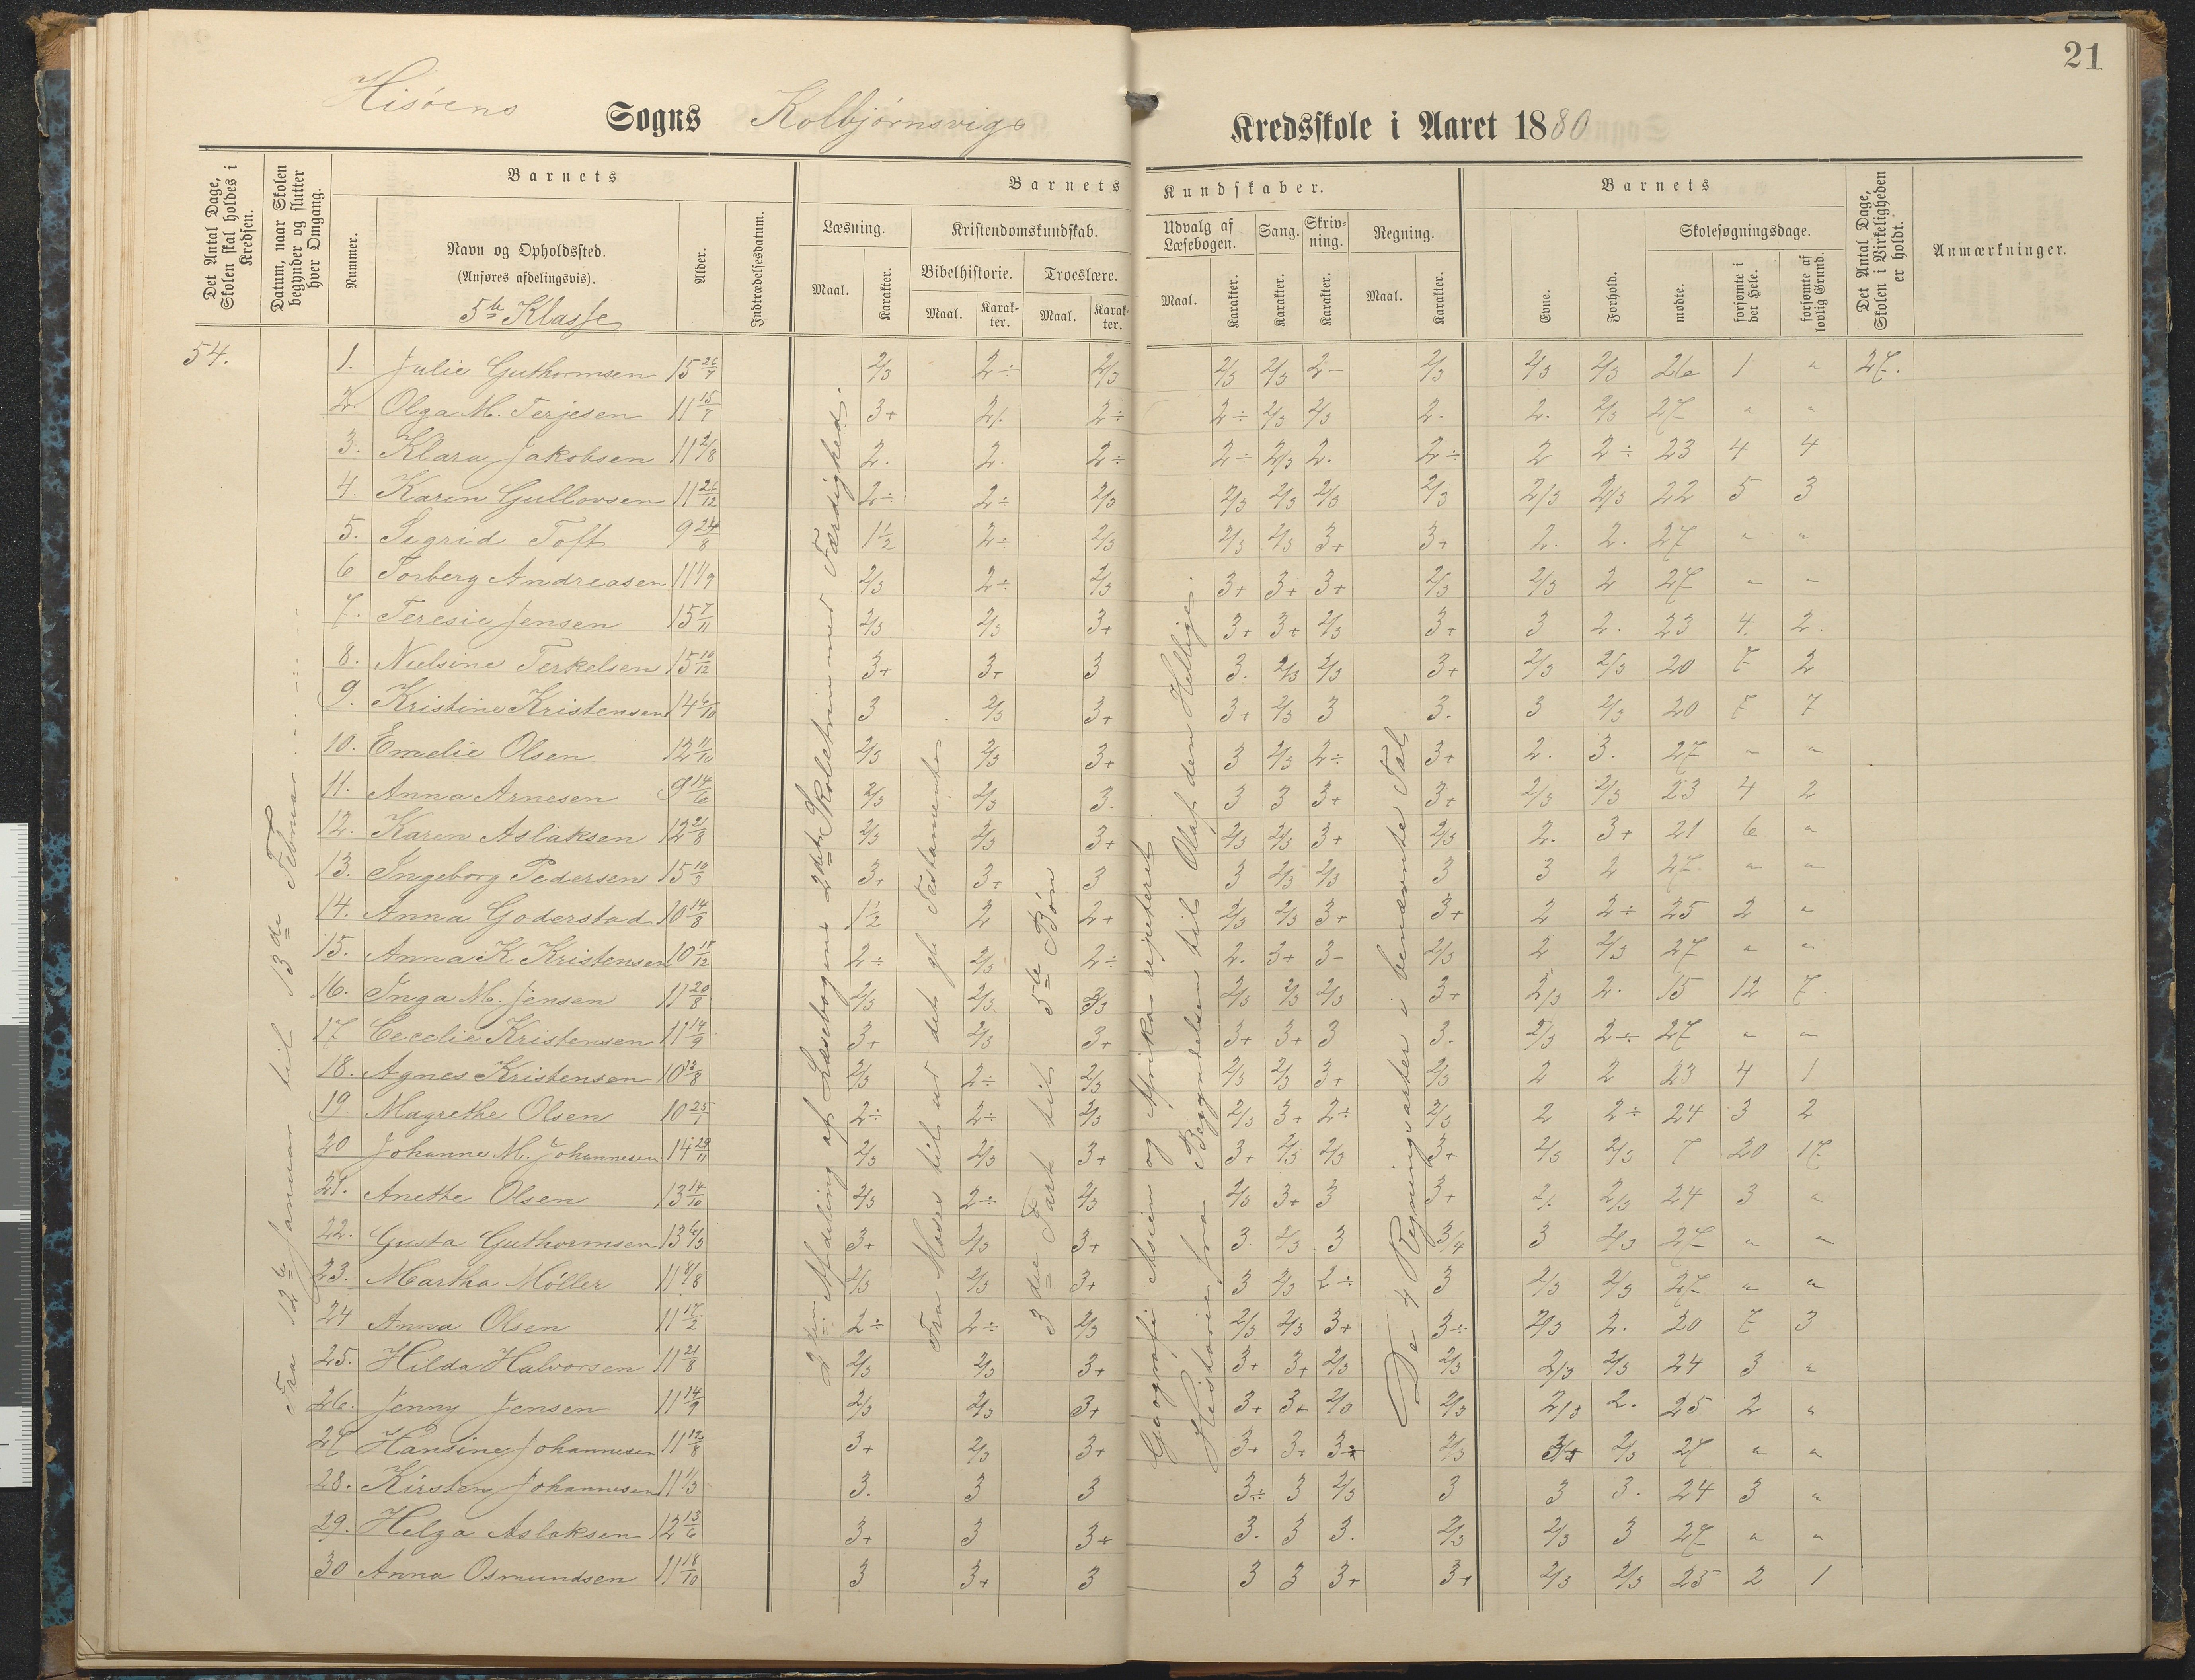 21
Hisøens Sogns Kolbjørnsvigs Kredsskole i Aaret 1880
Det Antal Dage, Skolen skal holdes i Kredsen.
Datum, naar Skolen begynder og slutter hver Omgang.
Nummer.
Barnets
Navn og Opholdssted.
(Anføres afdelingsvis).
5te Klasse
Alder.
Indtrædelsesdatum.
Barnets Kundskaber.
Læsning.
Maal.
Karakter.
Kristendomskundskab.
Bibelhistorie.
Maal.
Karakter.
Troeslære.
Maal.
Karakter.
Udvalg af Læsebogen.
Maal.
Karakter.
Sang.
Karakter.
Skrivning.
Karakter.
Regning.
Maal.
Karakter.
Barnets
Evne.
Forhold.
Skolesøgningsdage.
mødte.
forsømte i det Hele.
forsømte af lovlig Grund.
Det Antal Dage, Skolen i Virkeligheden er holdt.
Anmærkninger.
54.
Fra 12te Januar til 13de Februar
2den Afdeling af Læsebogens 2det Skoletrin med Færdighed.
Fra Moses til ud det gle Testamente
3die Part til 5te Bøn
Geografi Asien og Afrika repeteret
Historie fra Begyndelsen til Olaf den Hellige.
De 4 Regningsarter i benævnte Tal
1. Julie Guthormsen 15 26/7 2/3 2÷ 2/3 2/3 2/3 2- 2/3 2/3 2/3 26 1 " 27.
2. Olga M. Terjesen 11 15/7 3+ 2/. 2÷ 2÷ 2/3 2/3 2. 2. 2/3 27 " "
3. Klara Jakobsen 11 2/8 2. 2. 2÷ 2÷ 2/3 2. 2÷ 2 2÷ 23 4 4
4. Karen Gullovsen 11 21/12 2÷ 2÷ 2/3 2/3 2/3 2/3 2/3 2/3 2/3 22 5 3
5. Sigrid Toft 9 24/8 1½ 2÷ 2/3 2/3 2/3 3+ 3+ 2. 2. 27 " "
6 Torberg Andreasen 11 1/9 2/3 2÷ 2/3 3+ 3+ 3+ 2/3 2/3 2 27 " "
7. Teresie Jensen 15 7/11 2/3 2/3 3+ 3+ 3+ 2/3 3+ 3 2. 23 4. 2.
8. Nielsine Terkelsen 15 10/12 3+ 3+ 3 3. 2/3 2/3 3+ 2/3 2/3 20 7 2
9. Kristine Kristensen 14 6/10 3 2/3 3+ 3+ 2/3 3 3. 3 2/3 20 7 7
10. Emelie Olsen 12 11/10 2/3 2/3 3+ 3 2/3 2÷ 3+ 2. 3. 27 " "
11. Anna Arnesen 9 14/6 2/3 2/3 3. 3 3 3+ 3+ 2/3 2/3 23 4 2
12. Karen Aslaksen 12 21/8 2/3 2/3 3+ 2/3 2/3 3+ 2/3 2. 3+ 21 6 "
13. Ingeborg Pedersen 15 10/3 3+ 3+ 3 3 2/3 2/3 3 3 2 27. " "
14. Anna Goderstad 10 14/8 1½ 2 2+ 2/3 2/3 3+ 3+ 2 2÷ 25 2 "
15. Anna K Kristensen 10 11/12 2÷ 2/3 2÷ 2. 3+ 3- 2/3 2 2/3 27 " "
16. Inga M. Jensen 11 20/8 2/3 2/3 2/3 2/3 2/3 2/3 3+ 2/3 2. 15 12 7.
17 Cecelie Kristensen 11 14/9 3+ 2/3 3+ 3+ 3+ 3 3. 2/3 2÷ 27 " "
18. Agnes Kristensen 10 23/8 2/3 2÷ 2/3 2/3 2/3 3+ 2/3 2 2 23 4 1
19 Magrethe Olsen 10 25/1 2÷ 2÷ 2/3 2/3 3+ 2÷ 2/3 2 2÷ 24 3 2
20 Johanne M. Johannesen 14 29/11 2/3 2/3 3+ 3+ 2/3 2/3 3+ 2/3 2/3 7 20 17
21. Anethe Olsen 13 14/10 2/3 2÷ 2/3 2/3 3+ 3 3+ 2/. 2/3 24 3 "
22. Gusta Guthormsen 13 6/3 3+ 2/3 3+ 3. 2/3 3 3/4 3 2/3 27 " "
23. Martha Møller 11 8/8 2/3 2/3 3+ 3 2/3 2÷ 3 2/3 2/3 27 " "
24 Anna Olsen 11 17/2 2÷ 2÷ 2/3 2/3 2/3 3+ 3÷ 2/3 2. 20 7 3
25. Hilda Halvorsen 11 21/8 2/3 2/3 3+ 3+ 3+ 2/3 2/3 2/3 2/3 24 3 "
26. Jenny Jensen 11 14/9 2/3 2/3 3+ 3+ 3+ 2/3 2/3 2/3 2. 25 2 "
27 Hansine Johannesen 11 12/8 3+ 2/3 3+ 3+ 3+ 3+ 2/3 3+ 2/3 27 " "
28. Kirsten Johannesen 11 1/3 3. 3 3 3÷ 3 2/3 3 3 3. 24 3 "
29. Helga Aslaksen 12 13/6 3+ 3 3÷ 3. 3 3. 2/3 2/3 3 27 " "
30 Anna Osmundsen 11 18/10 3 3+ 3 3 3 3+ 3+ 2/3 2/3 25 2 1